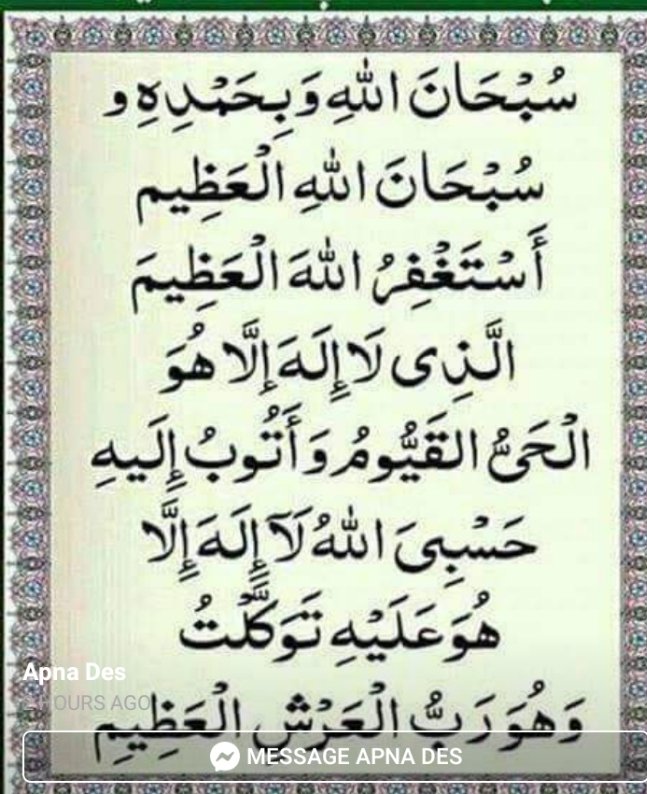 سُبْحَانَ اللهِ وَبِحَمْدِهِ و
سُبْحَانَ اللهِ الْعَظِيم
أَسْتَغْفِرُ اللهَ الْعَظِيمَ
الَّذِى لَا إِلَهَ إِلَّا هُوَ
الْحَىُّ القَيُّومُ وَأَتُوبُ إِلَيهِ
حَسْبِىَ اللهُ لَآ إِلَهَ إِلَّا
هُوَ عَلَيْهِ تَوَكَّلْتُ
Apna Des
HOURS AGO
وَهُوَ رَبُّ الْعَرْشِ الْعَظِيمِ
MESSAGE APNA DES